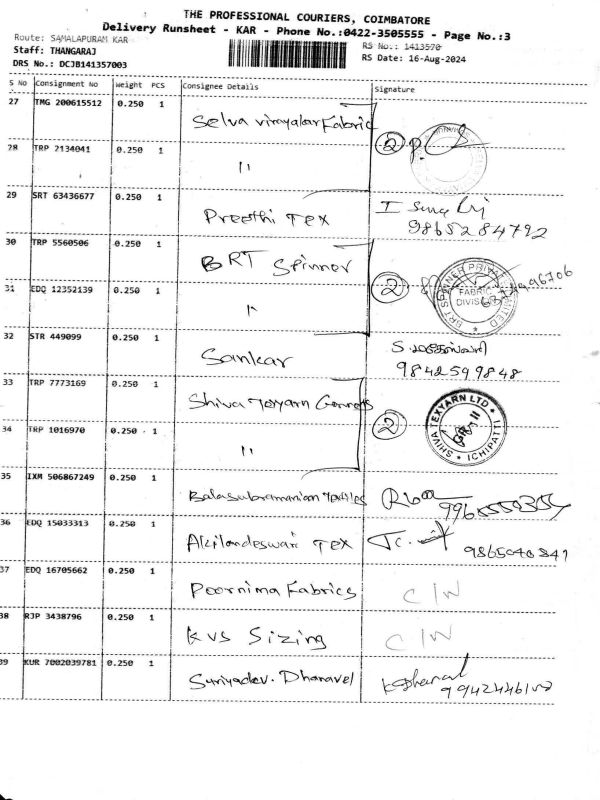 THE PROFESSIONAL COURIERS, COIMBATORE
Delivery Runsheet - KAR - Phone No.:0422-3505555 - Page No.:3
Route: SAMALAPURAM KAR
RS No.: 1413570
Staff: THANGARAJ
RS Date: 16-Aug-2024
DRS No.: DCJB141357003
S No Consignment No Weight PCS Consignee Details Signature
27 TMG 200615512 0.250 1 Selva vinayakar Fabric
2
28 TRP 2134041 0.250 1 "
29 SRT 63436677 0.250 1 Preethi Tex
9865284792
30 TRP 5560506 0.250 1 BRT Spinner
2 BRT SPINNER PRIVATE LIMITED FABRIC DIVISION
31 EDQ 12352139 0.250 1 "
32 STR 449099 0.250 1 Sankar
9842599848
33 TRP 7773169 0.250 1 Shiva Texyarn
2 SHIVA TEXYARN LTD ICHIPATTI
34 TRP 1016970 0.250 1 "
35 IXM 506867249 0.250 1 Balasubramanian Textiles
36 EDQ 15033313 0.250 1 Akilandeswari Tex
9865040841
37 EDQ 16705662 0.250 1 Poornima Fabrics C/N
38 RJP 3438796 0.250 1 KVS Sizing C/N
39 KUR 7002039781 0.250 1 Suriyadev. Dhanavel